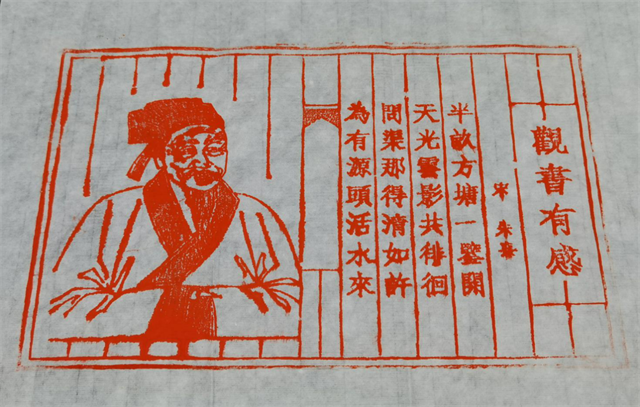 觀書有感
宋 朱熹
半畝方塘一鑒開
天光雲影共徘徊
問渠那得清如許
為有源頭活水來